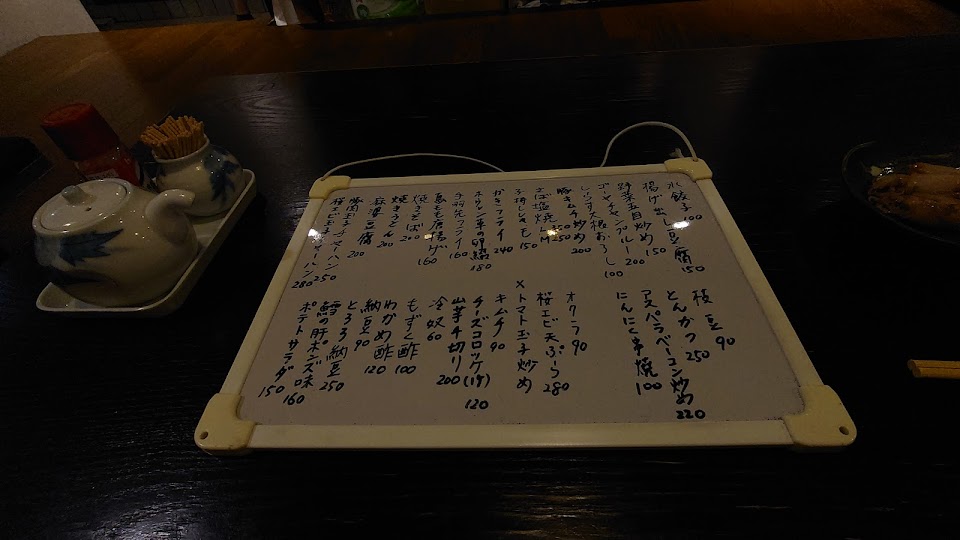 水餃子 100
揚げ出し豆腐 150
野菜五目炒め 150
ゴーヤチャンプルー 200
しらす大根おろし 100
豚キムチ炒め 200
さば塩焼
子持ししゃも 150
かきフライ 240
手羽先フライ 160
鳥もも唐揚げ 160
焼そば 200
焼きうどん 200
麻婆豆腐 200
豚肉玉子チャーハン 250
桜エビ玉子チャーハン 280
枝豆 90
とんかつ 250
アスパラベーコン炒め 220
にんにく串焼 100
オクラ 90
桜エビ天ぷら 280
×トマト玉子炒め
キムチ 90
チーズコロッケ(1ケ) 120
山芋千切り 200
冷奴 60
もずく酢 100
わかめ酢 120
納豆 90
とろろ納豆 250
鱈の肝ポンズ味 160
ポテトサラダ 150